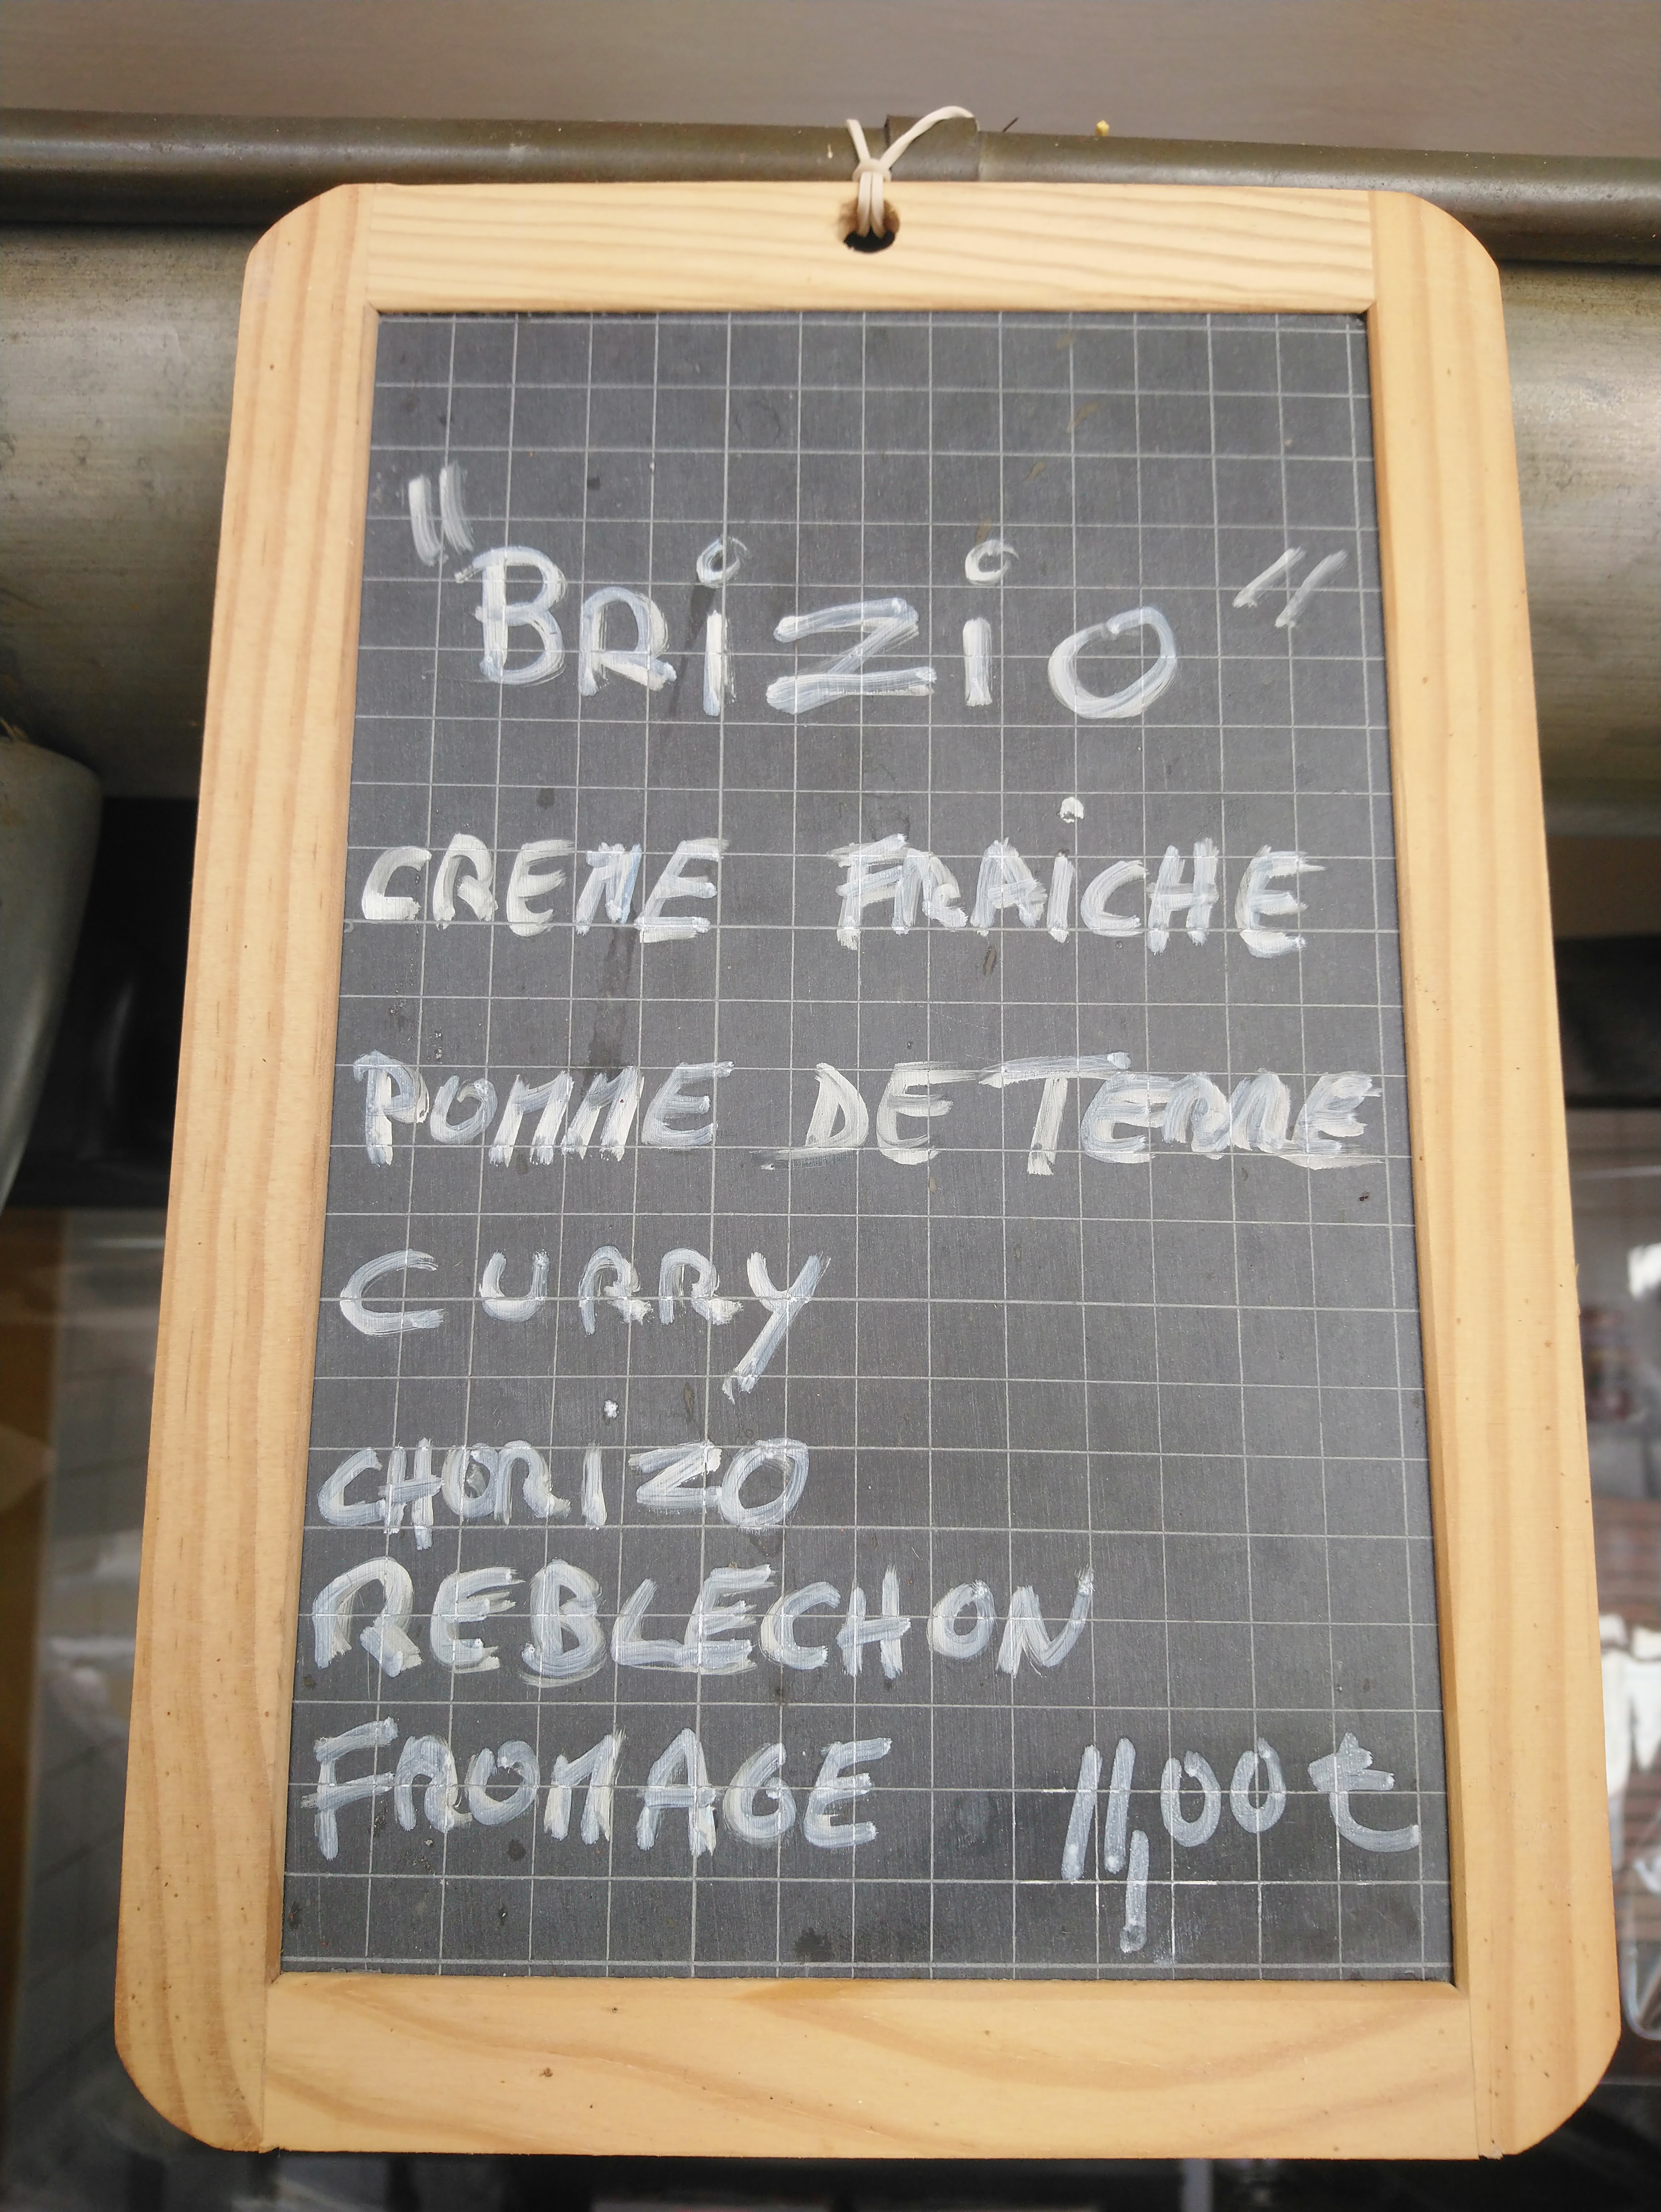 "BRiZiO"
CREME FRAiCHE
POMME DE TERRE
CURRY
CHORIZO
REBLECHON
FROMAGE 11,00 €